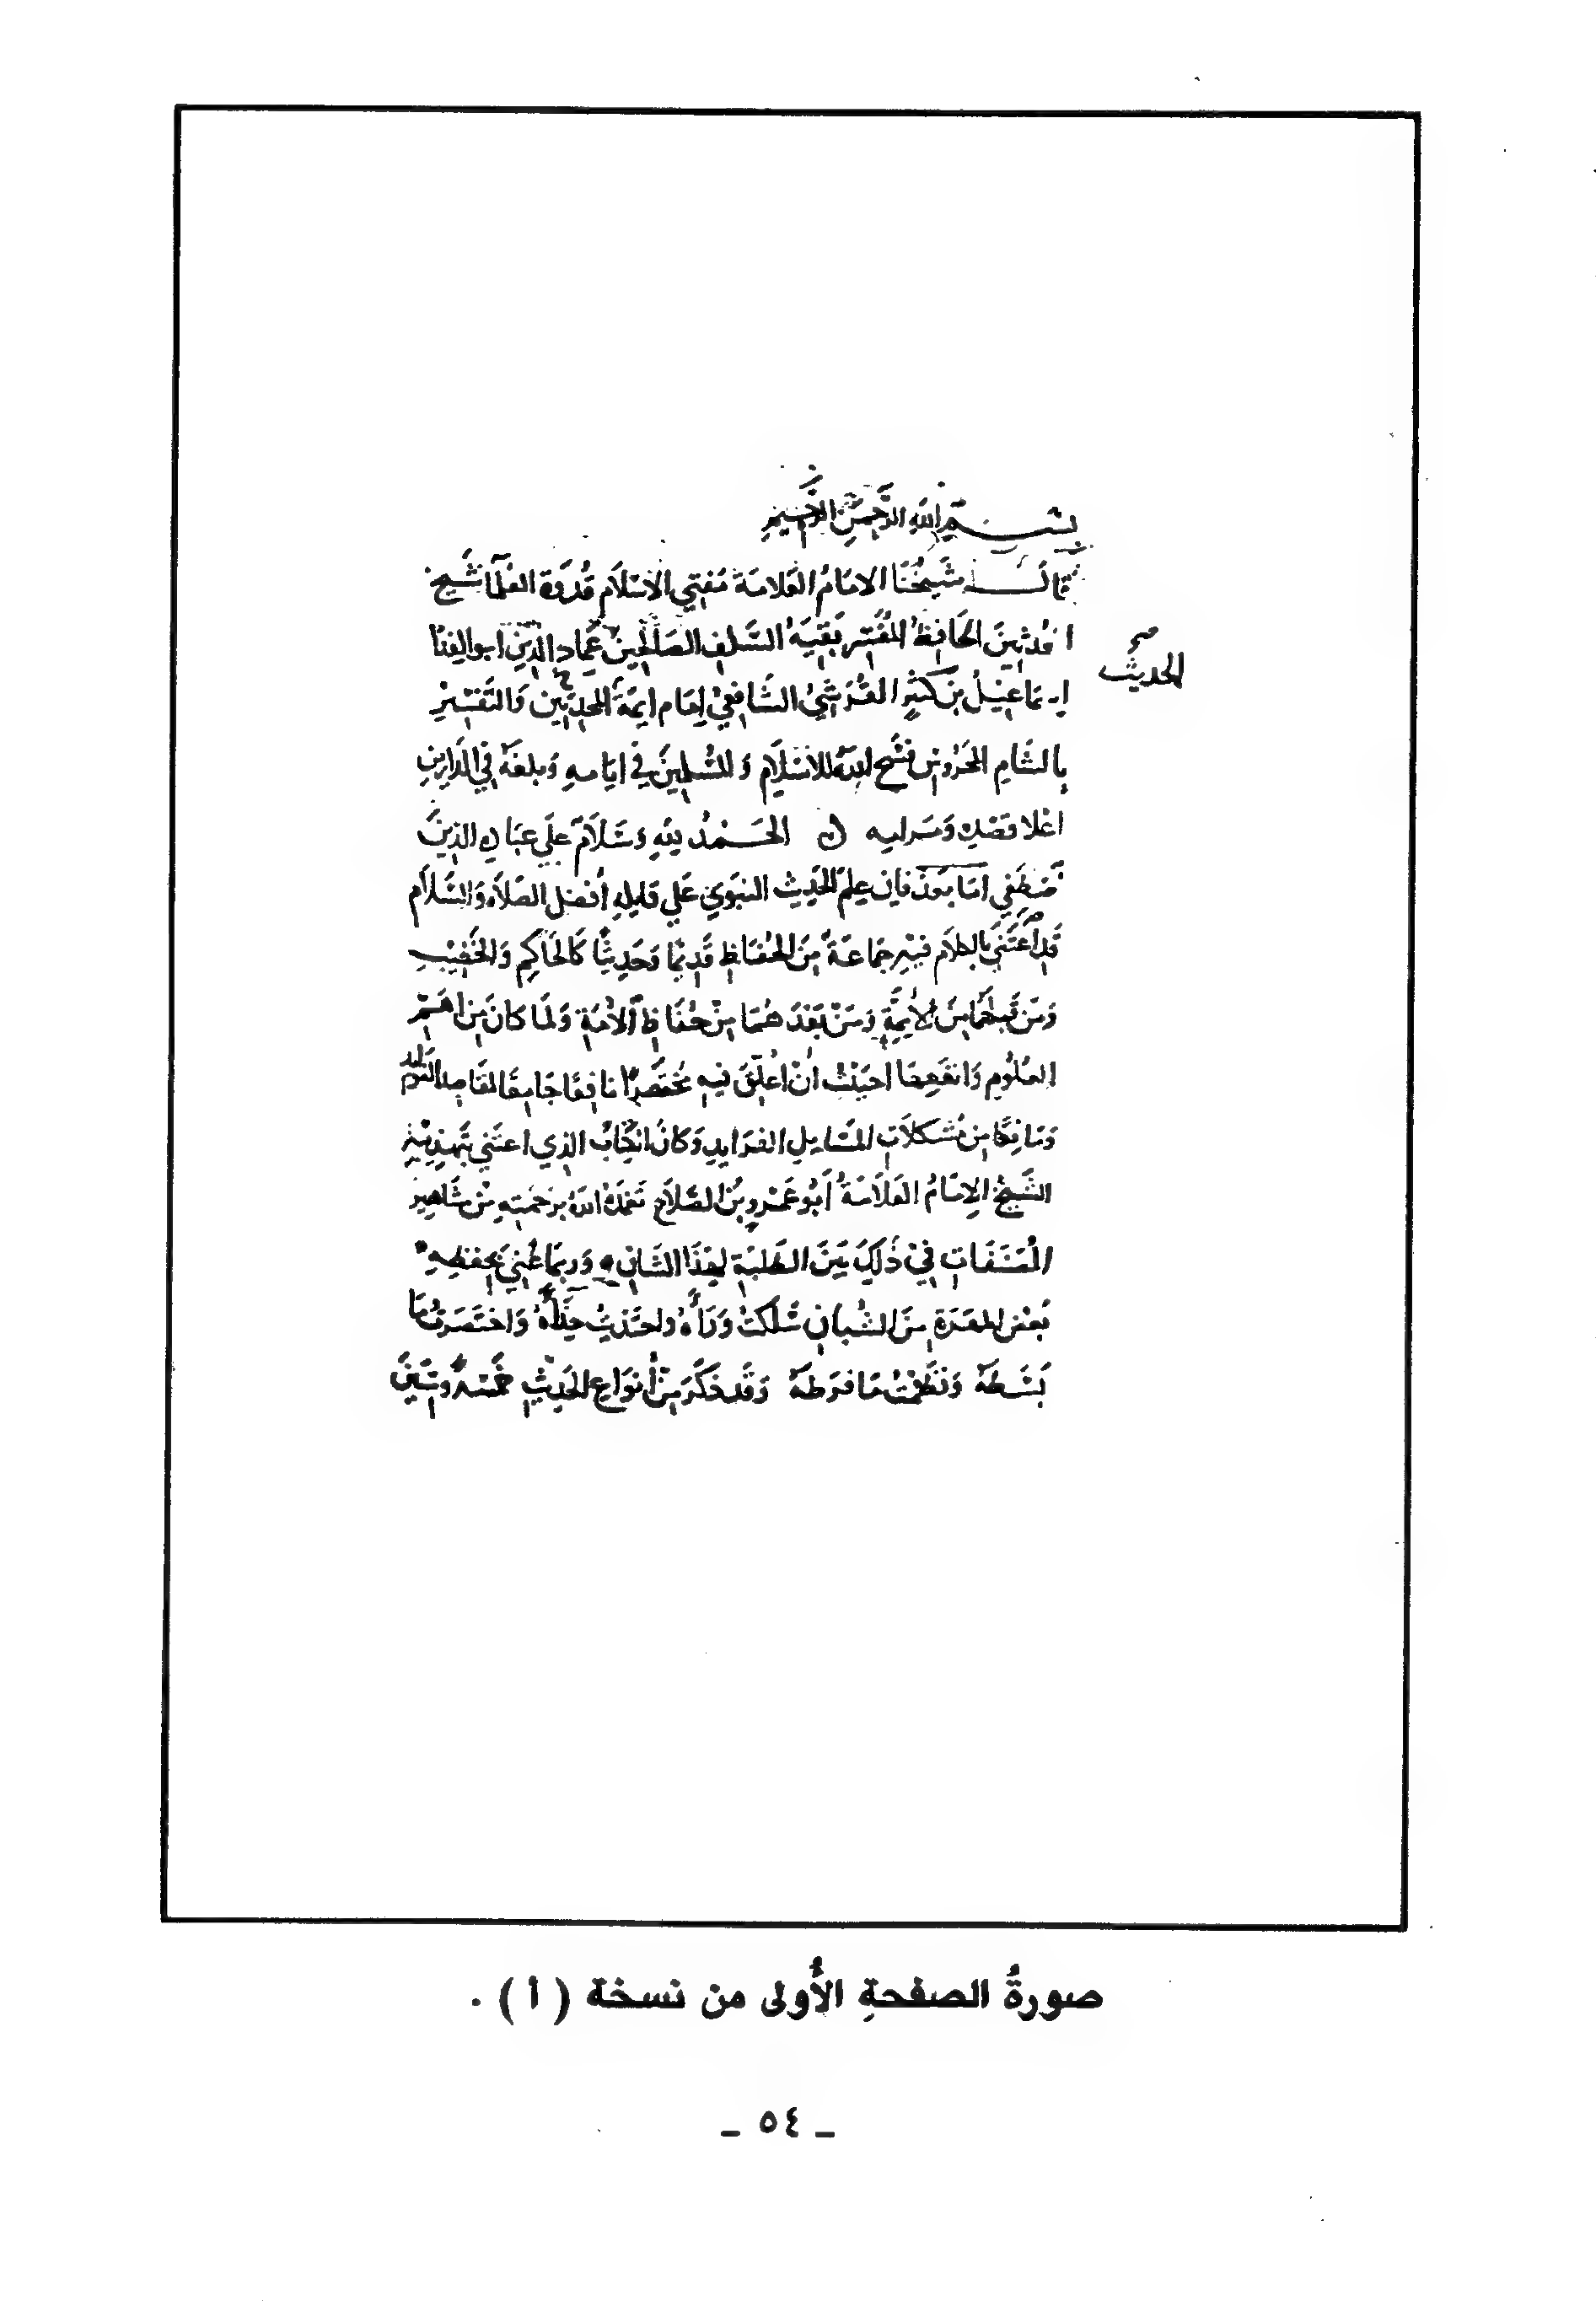 بِسْمِ اللهِ الرَّحْمٰنِ الرَّحِيمِ
قالَ شَيْخُنَا الامَامُ العَلامَة مُفتي الاسْلَام قُدْوَة العُلَمَا شَيخ
المحُدثينَ الحَافِظُ المُفَسّر بَقِيَةُ السَّلفِ الصَالِحِين عِمَاد الدّين ابو الفِدَا
الحديث صح
إسمَاعِيْلُ بن كَثيْرٍ القُرَشِيُ الشَافِعيْ إمَام ايمَة المحدثين وَالتَفسْيرِ
بِالشَامِ المحَرُوس فسَح اللهُ للاسْلَامِ وَللمُسْلِمِينَ في ايَامه وَبلغهُ في الدَارينِ
اعْلا قصْدِه وَمَرامه الحَمْدُ للهِ وَسَلَامٌ علَى عبَادِه الذينَ
اصْطَفِي امَا بَعدُ فان عِلم الحَدِيث النبَوي عَلي قايلِهِ أفضل الصَلاة وَالسَلَام
قَد اعْتَنَي بالكلَام فيْهِ جمَاعَةٌ مِنَ الحُفَاظِ قَدِيمًا وَحَدِيثًا كَالحَاكِم وَالخَطِيْبِ
وَمَن قَبلهُمَا مِنَ الأيمَّةِ وَمَنْ بَعْدَهُمَا مِنْ حُفَاظِ الأمَةِ وَلمَا كانَ مِن اهَمِّ
العُلُومِ وَانفَعِهَا احبَبْتُ انْ اعُلِقَ فيهِ مُخْتَصَرًا نافِعًا جَامِعًا لمقَاصِد الفَوايد
وَمَانِعًا مِن مُشكلَاتِ المَسَايلِ الفرَايدِ وَكانَ الكِتَابُ الذِي اعتَني بتَهذِيبِهِ
الشَيْخُ الإمَامُ العَلَامَةُ أبُو عَمْرو بنُ الصَلَاح تغمدَهُ اللهُ برَحمَتِهِ مِنْ مشَاهِيرِ
المُصَنَفَاتِ فيْ ذَلِكَ بَيَنَ الطَلبَةِ لهَذَا الشَانِ وَرُبمَا عُنِيَ بِحِفظِهِ
بَعْضُ المهَرَةِ مِنَ الشُبانِ سَلَكتُ وَرَاءَهُ واحتَذيتُ حِذَاءَهُ وَاختَصَرتُ مَا
بَسَطَهُ وَنظَمْتُ مَا فرَطَهُ وَقَد ذكَرَ مِنْ أنوَاعِ الحَدِيْثِ خَمْسَةً وَسِتيِنَ
صورةُ الصفحةِ الأُولى من نسخة ( أ ) .
- ٥٤ -